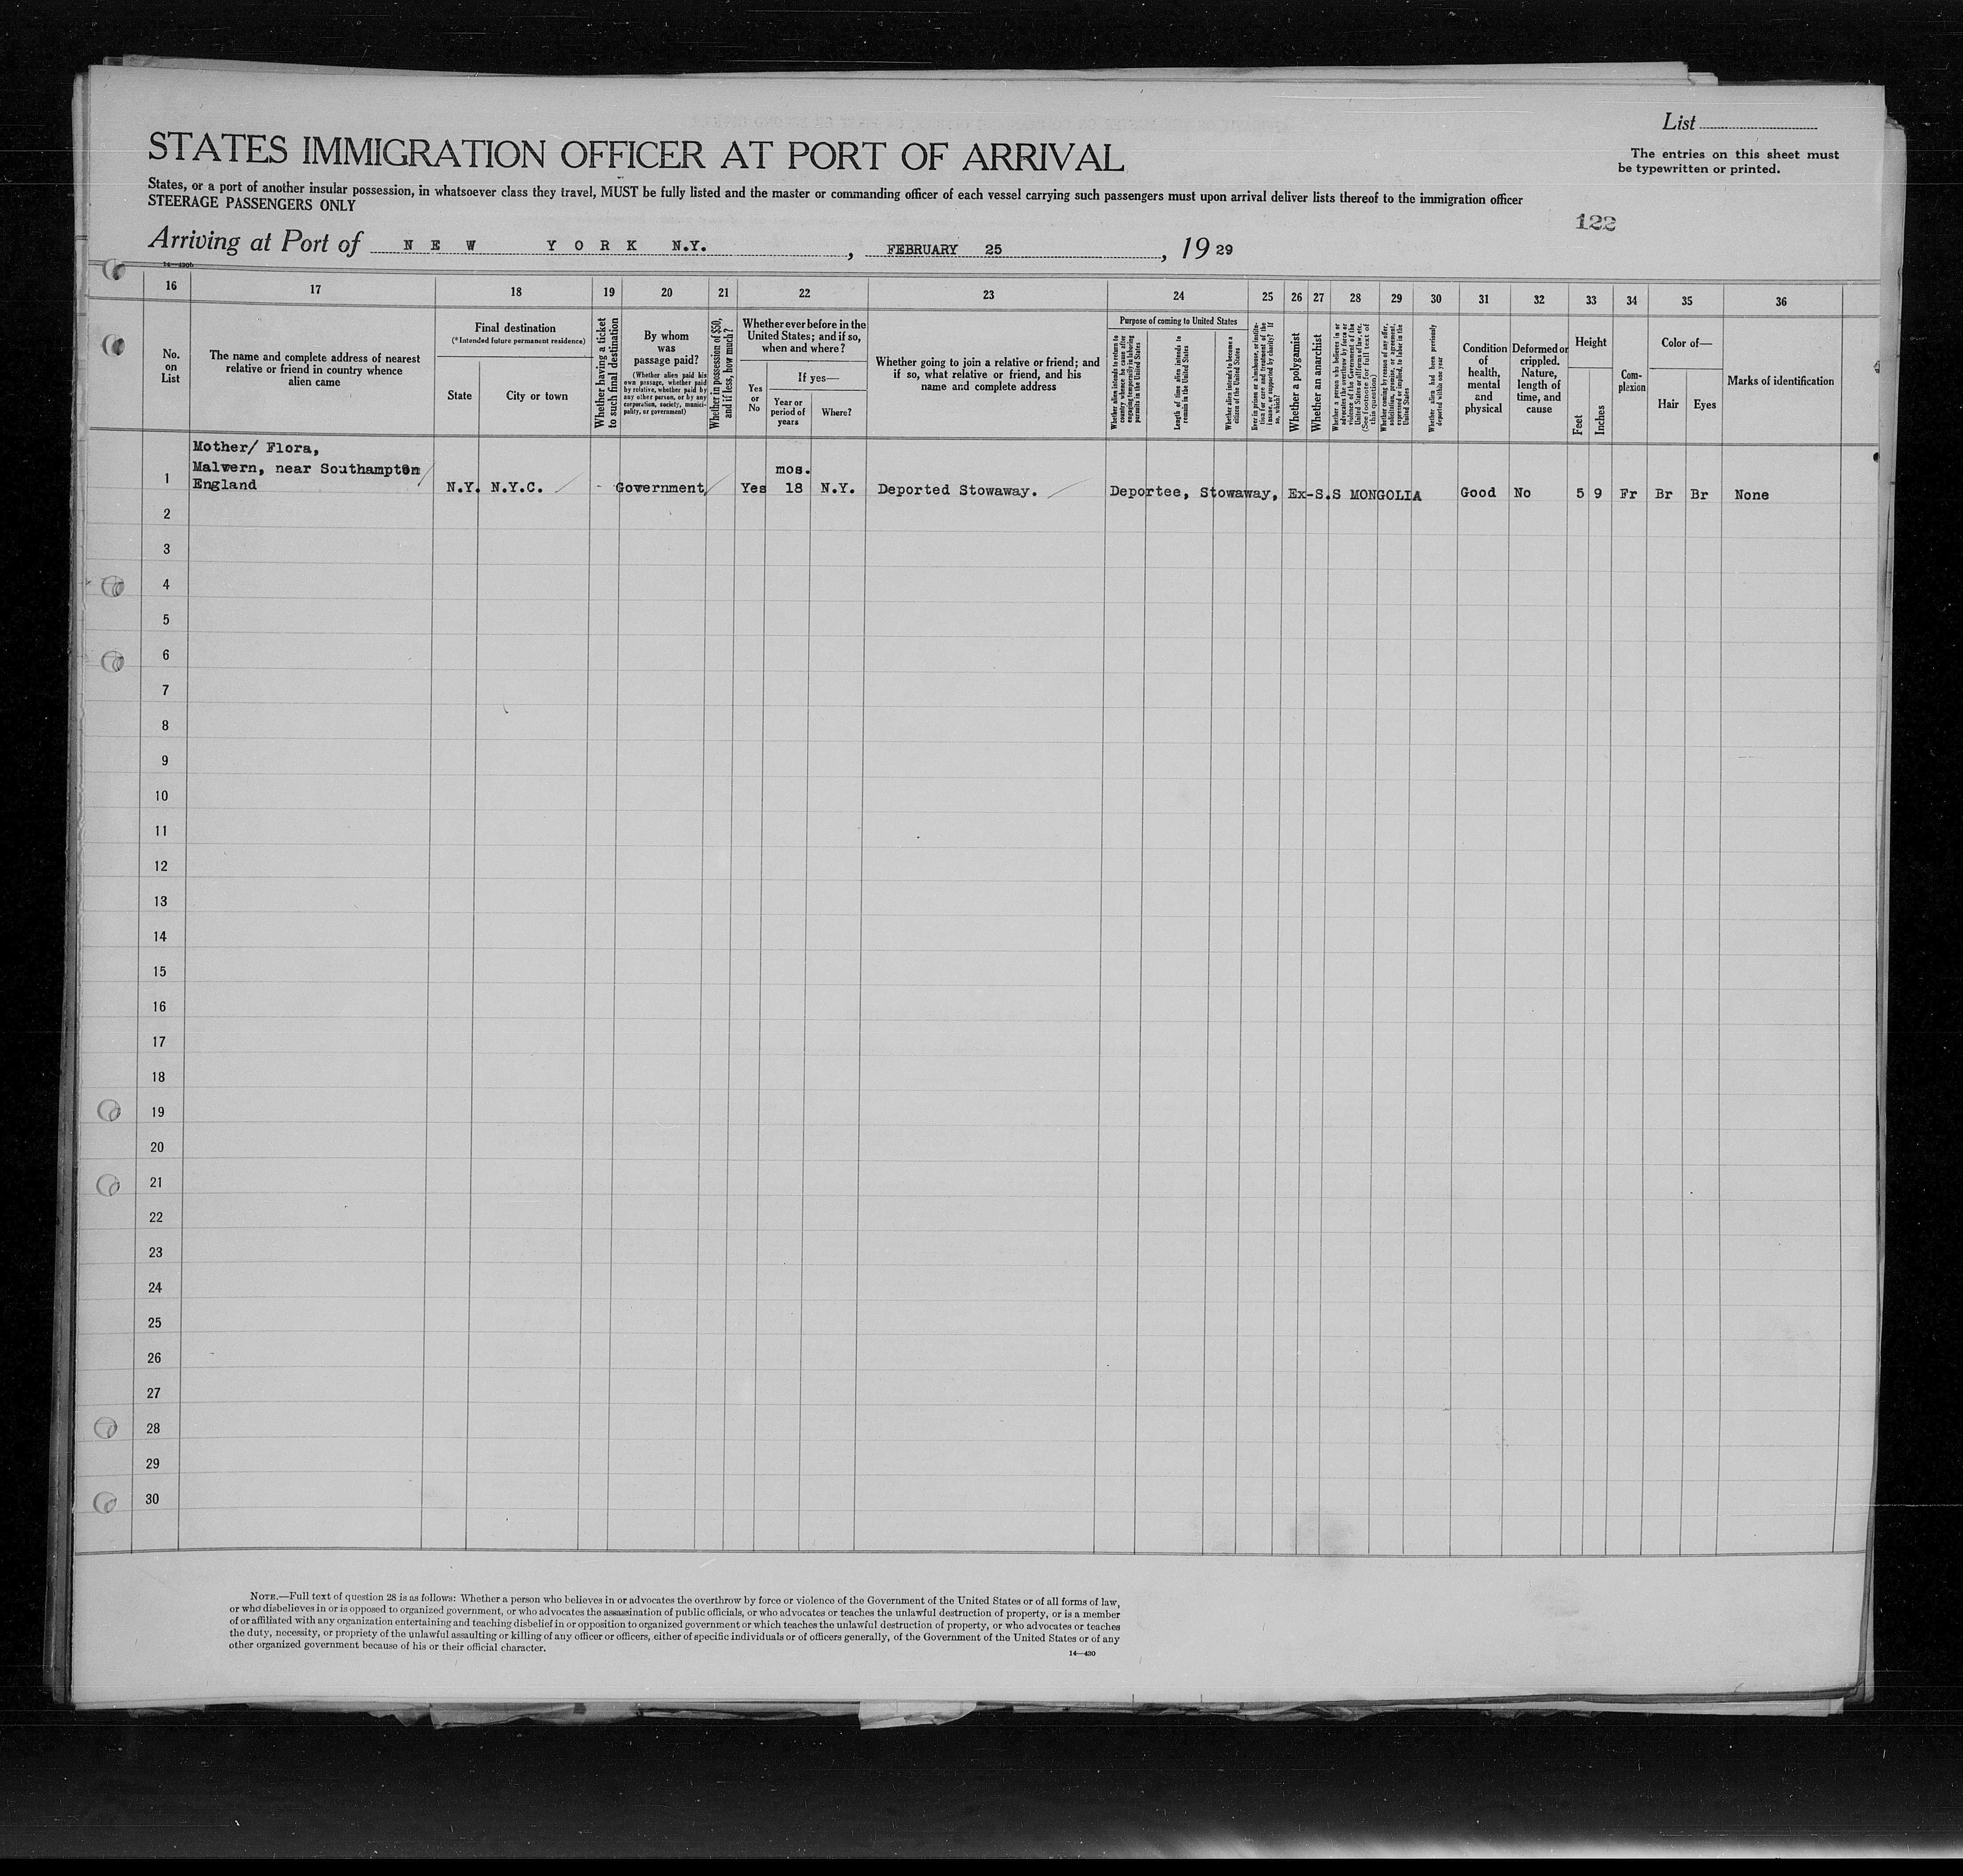 List
STATES IMMIGRATION OFFICER AT PORT OF ARRIVAL
The entries on this sheet must
be typewritten or printed.
States, or a port of another insular possession, in whatsoever class they travel, MUST be fully listed and the master or commanding officer of each vessel carrying such passengers must upon arrival deliver lists thereof to the immigration officer
STEERAGE PASSENGERS ONLY
122
Arriving at Port of N E W Y O R K N.Y. , FEBRUARY 25 , 19 29
14—430b
16 17 18 19 20 21 22 23 24 25 26 27 28 29 30 31 32 33 34 35 36
No.
on
List
The name and complete address of nearest
relative or friend in country whence
alien came
Final destination
(*Intended future permanent residence)
State
City or town
Whether having a ticket
to such final destination
By whom
was
passage paid?
(Whether alien paid his
own passage, whether paid
by relative, whether paid by
any other person, or by any
corporation, society, munici-
pality, or government)
Whether in possession of $50,
and if less, how much?
Whether ever before in the
United States; and if so,
when and where?
Yes
or
No
If yes—
Year or
period of
years
Where?
Whether going to join a relative or friend; and
if so, what relative or friend, and his
name and complete address
Purpose of coming to United States
Whether alien intends to return to
country whence he came after
engaging temporarily in laboring
pursuits in the United States
Length of time alien intends to
remain in the United States
Whether alien intends to become a
citizen of the United States
Ever in prison or almshouse, or institu-
tion for care and treatment of the
insane, or supported by charity? If
so, which?
Whether a polygamist
Whether an anarchist
Whether a person who believes in or
advocates the overthrow by force or
violence of the Government of the
United States or all forms of law, etc.
(See footnote for full text of
this question)
Whether coming by reason of any offer,
solicitation, promise, or agreement,
expressed or implied, to labor in the
United States
Whether alien had been previously
deported within one year
Condition
of
health,
mental
and
physical
Deformed or
crippled.
Nature,
length of
time, and
cause
Height
Feet
Inches
Com-
plexion
Color of—
Hair
Eyes
Marks of identification
Mother/ Flora,
Malwern, near Southampton
England
mos.
1 N.Y. N.Y.C. - Government Yes 18 N.Y. Deported Stowaway. Deportee, Stowaway, Ex-S.S MONGOLIA Good No 5 9 Fr Br Br None
2
3
4
5
6
7
8
9
10
11
12
13
14
15
16
17
18
19
20
21
22
23
24
25
26
27
28
29
30
NOTE.—Full text of question 28 is as follows: Whether a person who believes in or advocates the overthrow by force or violence of the Government of the United States or of all forms of law,
or who disbelieves in or is opposed to organized government, or who advocates the assassination of public officials, or who advocates or teaches the unlawful destruction of property, or is a member
of or affiliated with any organization entertaining and teaching disbelief in or opposition to organized government or which teaches the unlawful destruction of property, or who advocates or teaches
the duty, necessity, or propriety of the unlawful assaulting or killing of any officer or officers, either of specific individuals or of officers generally, of the Government of the United States or of any
other organized government because of his or their official character.
14—430